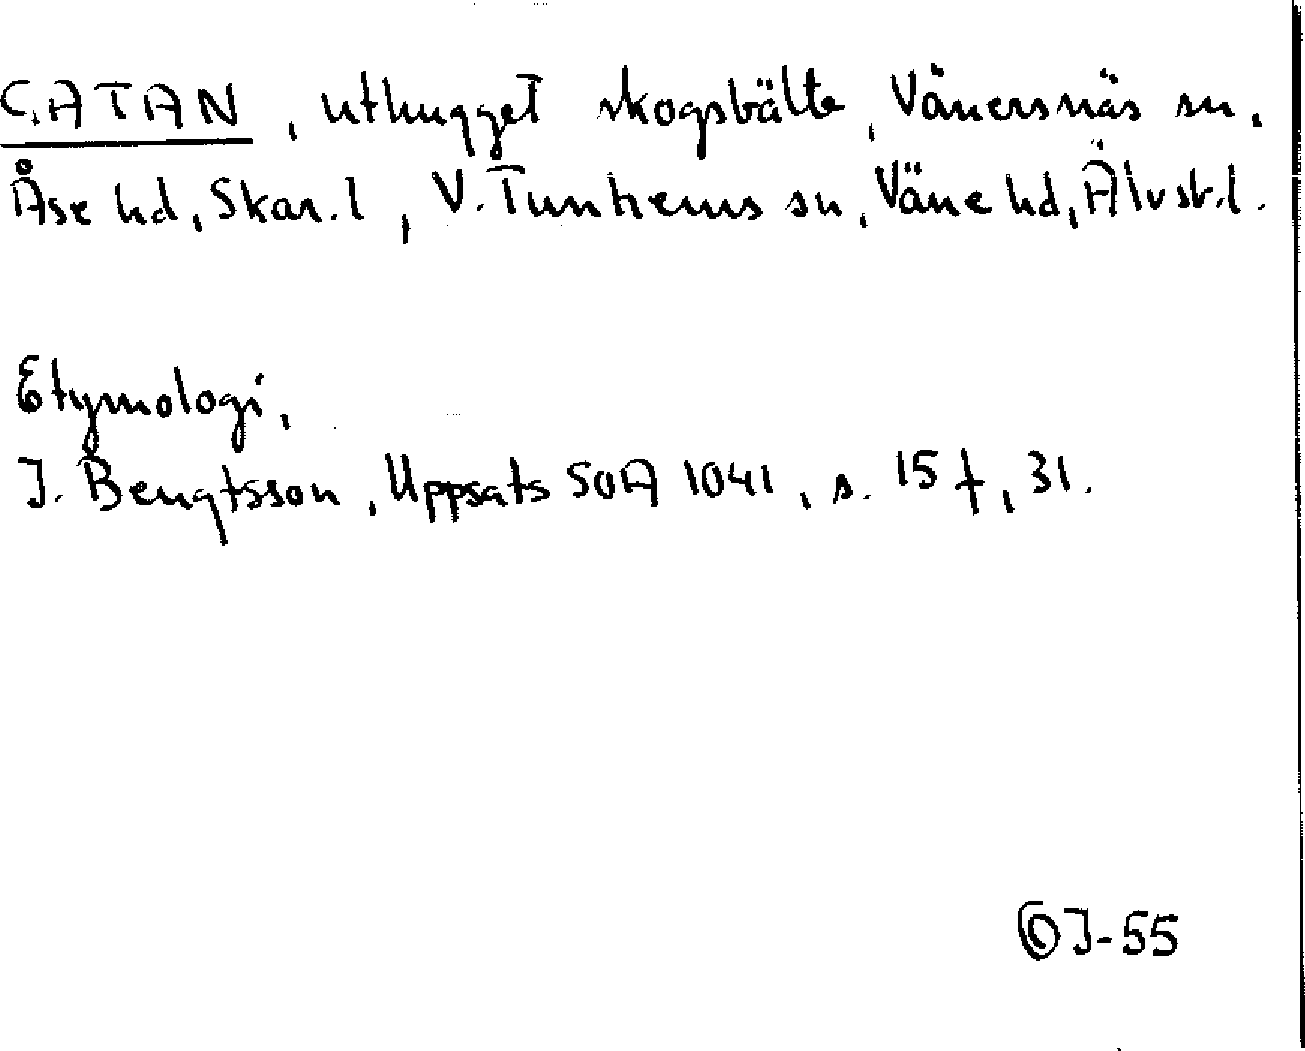 GATAN, uthugget skogsbälte, Vänersnäs sn,
Åse hd, Skar. l, V. Tunhems sn, Väne hd, Älvsb. l.
Etymologi,
J. Bengtsson, Uppsats SOA 1041, s. 15 f, 31.
OJ-55